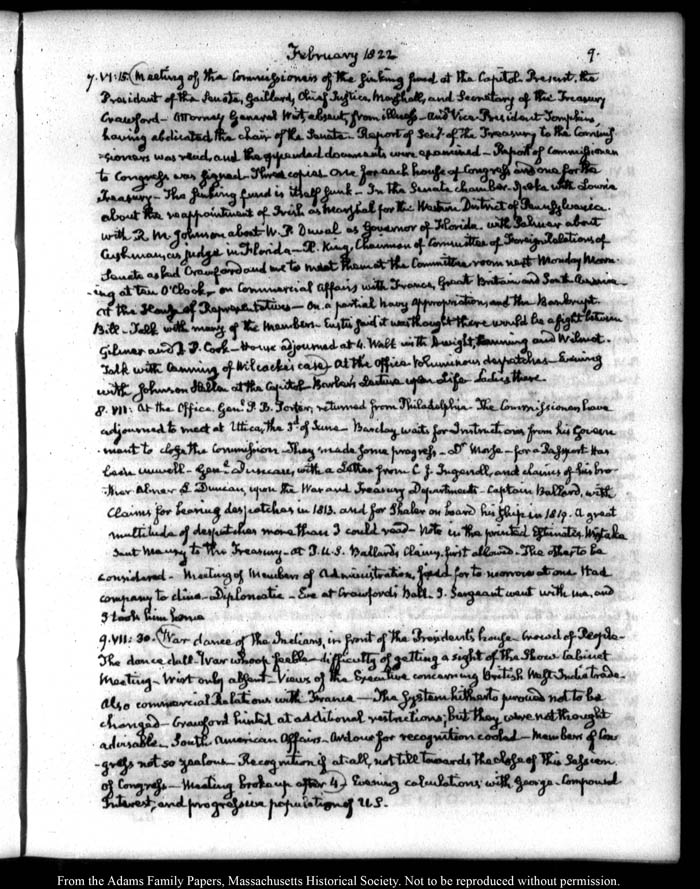 February 1822 9.
7. VI:15. (Meeting of the Commissioners of the sinking fund at the Capitol. Present, the
President of the Senate, Gaillard, Chief Justice, Marshall, and Secretary of the Treasury
Crawford — Attorney General Wirt, absent, from illness — and Vice-President Tompkins,
having abdicated the chair of the Senate — Report of Secy. of the Treasury to the Commis-
-sioners was read, and the appended documents were examined — Report of Commissioners
to Congress was signed. Three copies. One for each house of Congress and one for the
Treasury — The sinking fund is itself sunk — In the Senate chamber. Spoke with Lowrie
about the reappointment of Irish as Marshal for the Western District of Pennsylvania.
with R. M. Johnson about W. P. Duval as Governor of Florida. with Palmer about
Cushman, as judge in Florida — R. King, Chairman of Committee of Foreign Relations of
Senate asked Crawford and me to meet them at the Committee room next Monday Morn-
-ing at ten O'Clock, on Commercial Affairs with France, Great Britain and South America —
At the House of Representatives — On a partial Navy Appropriation, and the Bankrupt
Bill — Talk with many of the Members — Eustis said it was thought there would be a fight between
Gilmer and D. P. Cook — House adjourned at 4. Walk with Dwight, and Wilmot.
Talk with Canning of Wilcocks's case) — At the Office. Voluminous despatches — Evening
with Johnson Hellen at the Capitol. Barber's Lecture upon Life. Ladies there.
8. VII: At the Office. Genl. P. B. Porter, returned from Philadelphia. The Commissioners have
adjourned to meet at Utica, the 3d. of June — Barclay waits for Instructions from his Govern-
-ment to close the Commission — They made some progress — Dr. Morse — for a Passport. Has
been unwell — Genl. Duncan, with a Letter from C. J. Ingersoll, and claims of his bro-
-ther Abner L. Duncan, upon the War and Treasury Departments — Captain Ballard, with
Claims for bearing despatches in 1813. and for Shaler on board his ship in 1819. A great
multitude of despatches more than I could read — Note in the printed Estimates. Mistake
Sent Maury to the Treasury — at T.U.S. Ballard's Claim, first allowed — The other to be
considered — Meeting of Members of Administration, fixed for to-morrow at one. Had
company to dine — Diplomatic — Eve at Crawford's ball. J. Sergeant went with me, and
I took him home
9. VII: 30. (War dance of the Indians, in front of the President's house — Crowd of People —
The dance dull — War whoop feeble — difficulty of getting a sight of the Show. Cabinet
Meeting — Wirt only absent — Views of the Executive concerning British West-India trade —
Also commercial Relations with France — The System hitherto pursued not to be
changed — Crawford hinted at additional restrictions; but they were not thought
advisable — South American Affairs — Ardour for recognition cooled — Members of Con-
-gress not so zealous — Recognition if at all, not till towards the close of this Session
of Congress — Meeting broke up after 4) — Evening calculations, with George — Compound
Interest, and progressive population of U.S. —
From the Adams Family Papers, Massachusetts Historical Society. Not to be reproduced without permission.